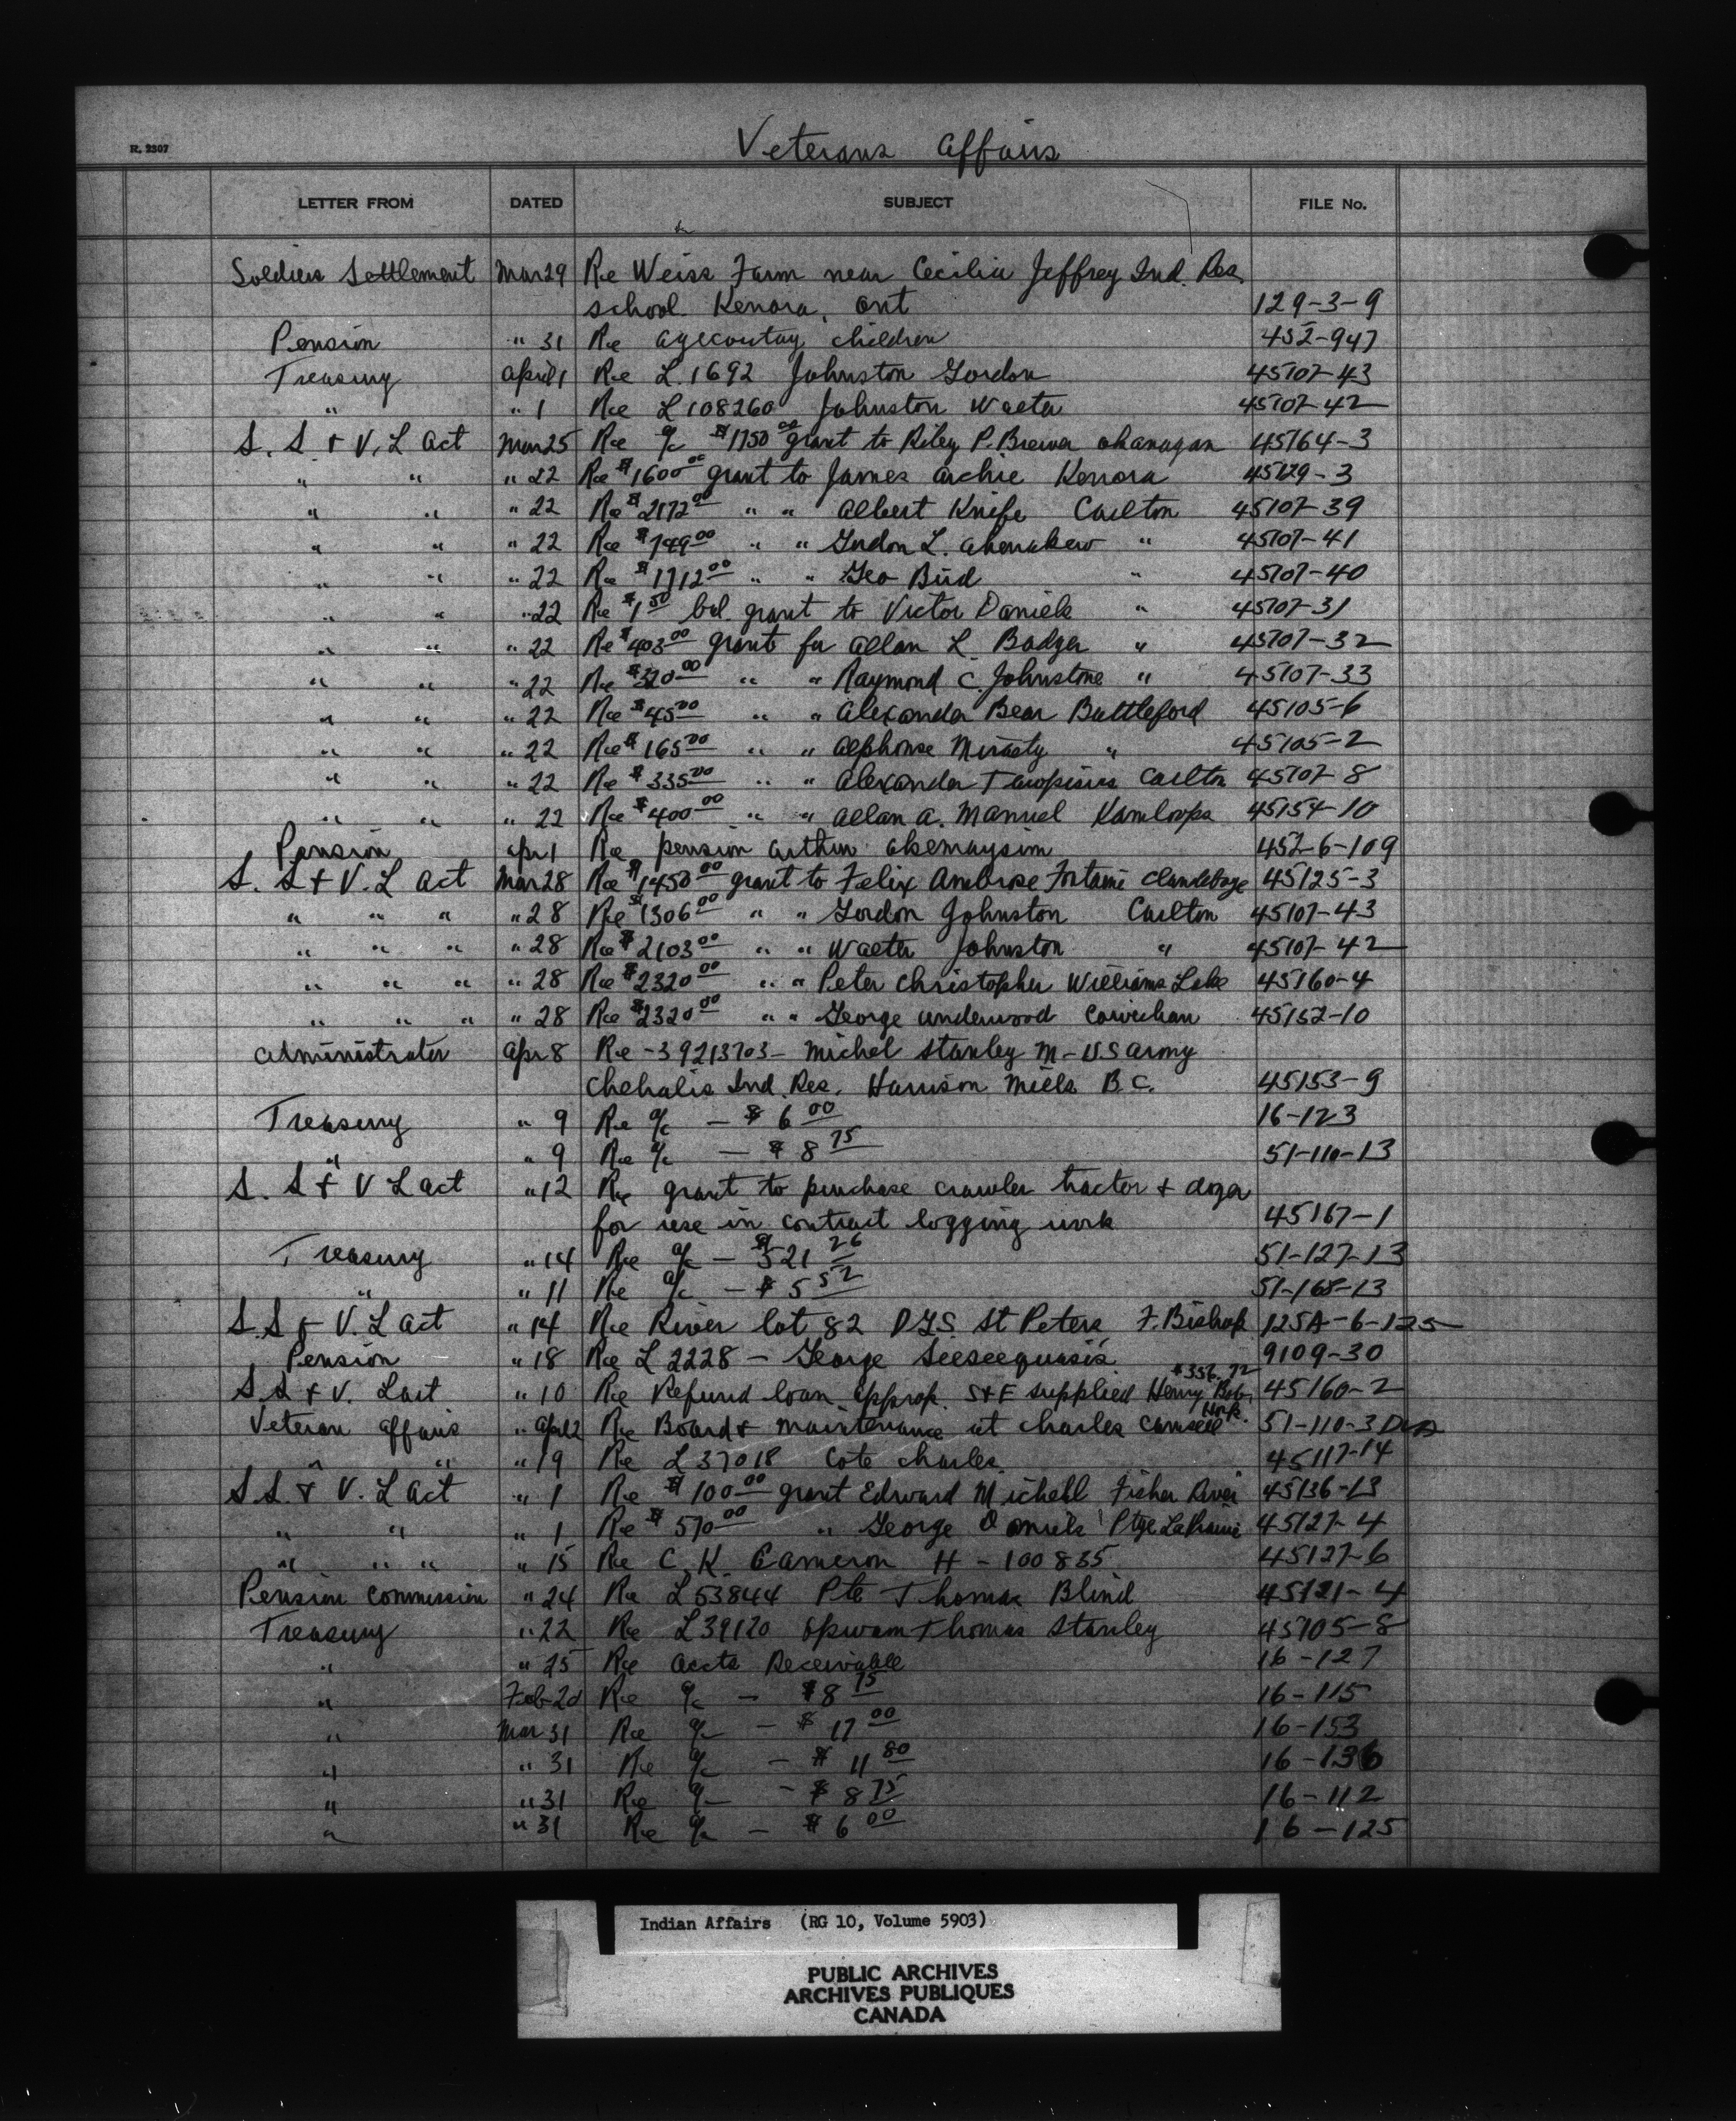 Veterans Affairs
R. 2307
LETTER FROM DATED SUBJECT FILE No.
Soldiers Settlement Mar 29 Re Weiss Farm near Cecilia Jeffrey Ind. Res.
school. Kenora, Ont 129-3-9
Pension " 31 Re children 452-947
Treasury April 1 Re L.1692 Johnston Gordon 45107-43
" " 1 Re L 108260 Johnston Walter 45107-42
S. S. + V. L Act Mar 25 Re a/c $1750 00 grant to Riley P. Brewer Okanagan 45164-3
" " " 22 Re $1600 00 grant to James Archie Kenora 45129-3
" " " 22 Re $2172 00 " " Albert Knife Carlton 45107-39
" " " 22 Re $749 00 " " Gordon L. Ahenakew " 45107-41
" " " 22 Re $1712 00 " " Geo Bird " 45107-40
" " " 22 Re $1 50 bal. grant to Victor Daniels " 45107-31
" " " 22 Re $403 00 grant for Allan L. Badger " 45107-32
" " " 22 Re $320 00 " " Raymond C. Johnstone " 45107-33
" " " 22 Re $45 00 " " Alexander Bear Battleford 45105-6
" " " 22 Re $165 00 " " Alphonse Mirasty " 45105-2
" " " 22 Re $335 00 " " Alexander Carlton 45107-8
" " " 22 Re $400 00 " " Allan A. Manuel Kamloops 45154-10
Pension Apr 1 Re pension Arthur Akemaysim 452-6-109
S. S + V. L Act Mar 28 Re $1450 00 grant to Felix Ambrose Fontaine Clandeboye 45125-3
" " " " 28 Re $1306 00 " " Gordon Johnston Carlton 45107-43
" " " " 28 Re $2103 00 " " Walter Johnston " 45107-42
" " " " 28 Re $2320 00 " " Peter Christopher Williams Lake 45160-4
" " " " 28 Re $2320 00 " " George Underwood Cowichan 45152-10
Administrator Apr 8 Re - 39213703 - Michel Stanley M - U.S Army
Chehalis Ind. Res. Harrison Mills B.C. 45153-9
Treasury " 9 Re a/c - $6 00 16-123
" " 9 Re a/c - $8 75 51-110-13
S. S + V L Act " 12 Re grant to purchase crawler tractor + dozer
for use in contract logging work 45167-1
Treasury " 14 Re a/c - $521 26 51-127-13
" " 11 Re a/c - $5 52 51-168-13
S. S + V. L Act " 14 Re River lot 82 D.G.S. St Peters, F. Bishop 125A-6-125
Pension " 18 Re L 2228 - George Seeseequasis 9109-30
$356.72
S S + V. L Act " 10 Re Refund loan approp. S+E supplied Henry Bob 45160-2
Veteran Affairs " April 2 Re Board + maintenance at Charles Camsell Hosp. 51-110-3 DVA
" " " 19 Re L 37018 Cote Charles 45117-14
S S. + V. L Act " 1 Re $100 00 grant Edward Michell Fisher River 45136-13
" " " 1 Re $570 00 " George Daniels Ptge La Prairie 45127-4
" " " " 15 Re C. K. Cameron H - 100835 45127-6
Pension Commission " 24 Re L 53844 Pte Thomas Blind 45121-4
Treasury " 22 Re L 39120 Opwam Thomas Stanley 45105-8
" " 25 Re Accts Receivable 16-127
" Feb 20 Re a/c - $8 75 16-115
" Mar 31 Re a/c - $17 00 16-153
" " 31 Re a/c - $11 80 16-136
" " 31 Re a/c - $8 75 16-112
" " 31 Re a/c - $6 00 16-125
Indian Affairs (RG 10, Volume 5903)
PUBLIC ARCHIVES
ARCHIVES PUBLIQUES
CANADA